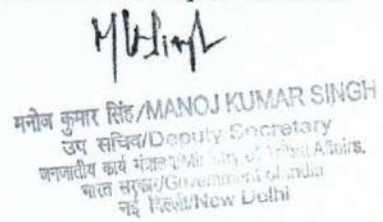 मनोज कुमार सिंह/MANOJ KUMAR SINGH
उप सचिव/Deputy Secretary
जनजातीय कार्य मंत्रालय/Ministry of Tribal Affairs.
भारत सरकार/Government of India
नई दिल्ली/New Delhi